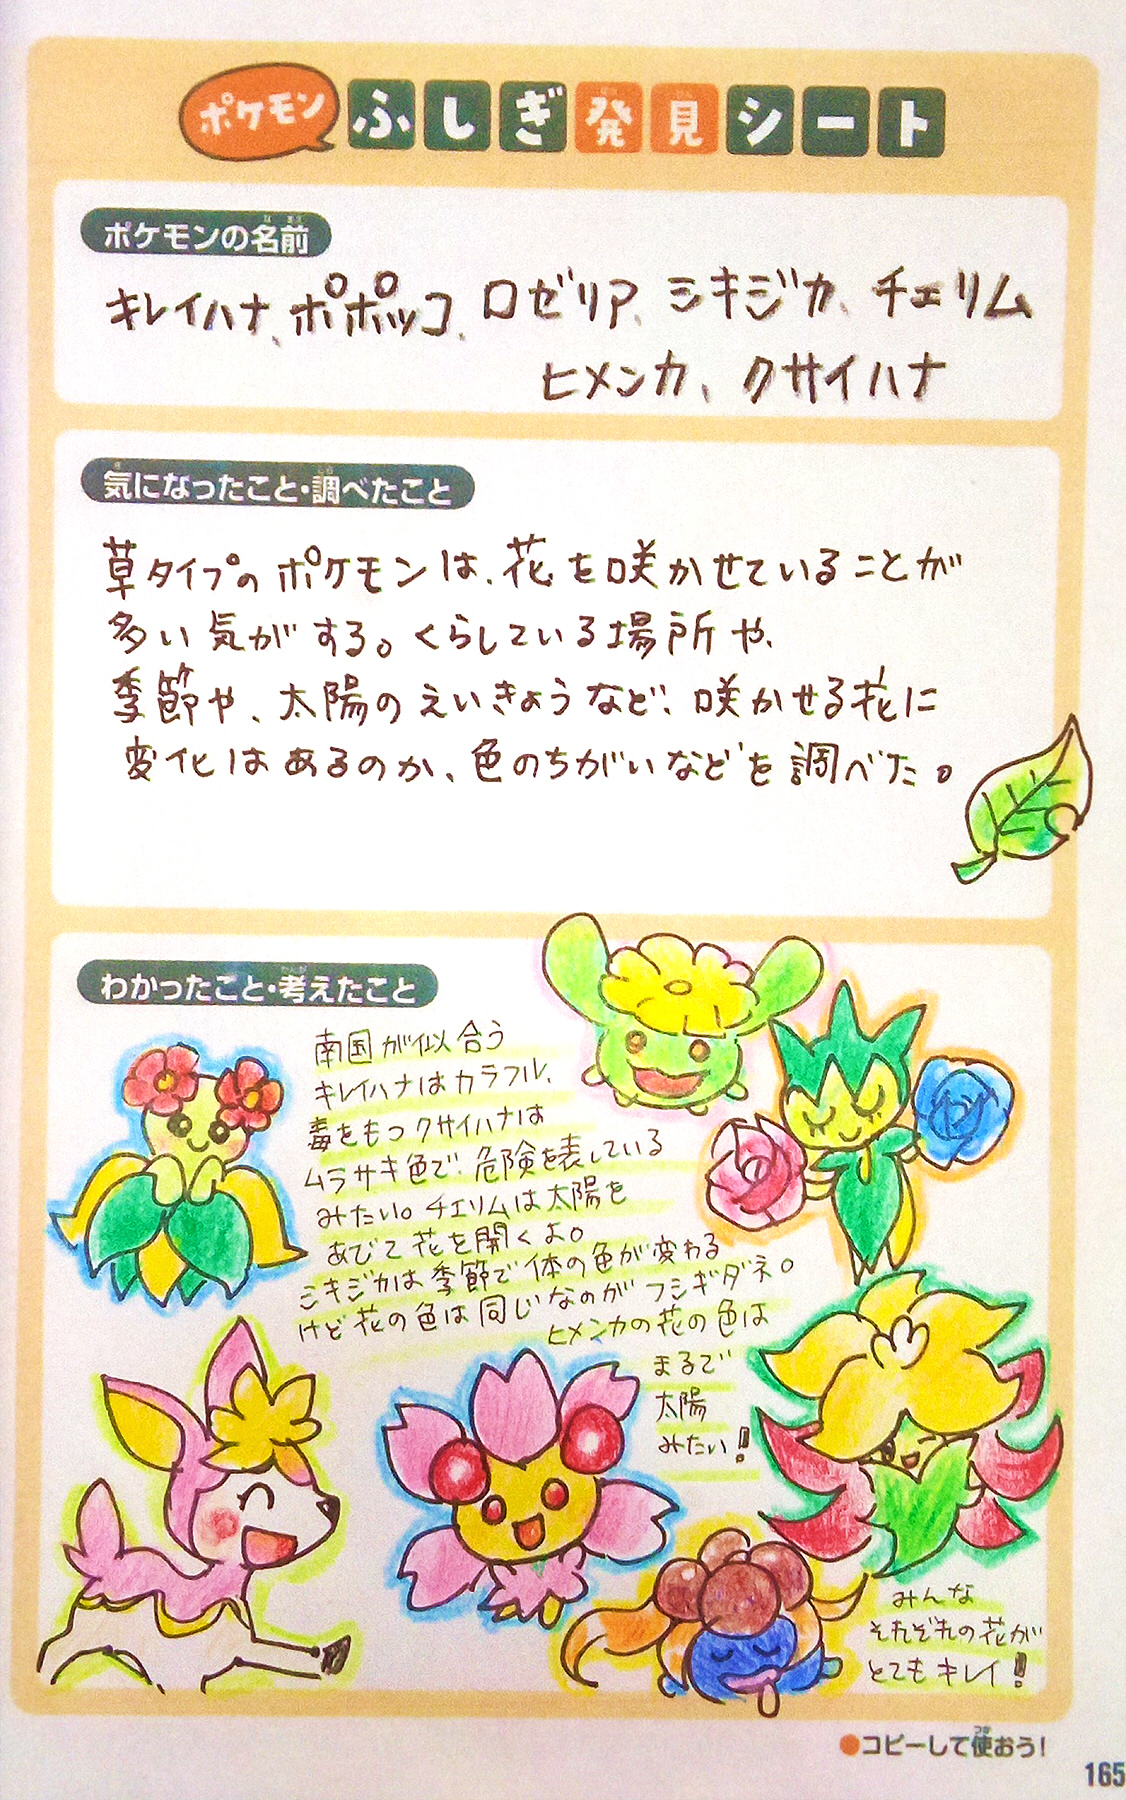 ポケモン ふしぎ発見シート
ポケモンの名前
キレイハナ、ポポッコ、ロゼリア、シキジカ、チェリム
ヒメンカ、クサイハナ
気になったこと・調べたこと
草タイプのポケモンは、花を咲かせていることが
多い気がする。くらしている場所や、
季節や、太陽のえいきょうなど、咲かせる花に
変化はあるのか、色のちがいなどを調べた。
わかったこと・考えたこと
南国が似合う
キレイハナはカラフル、
毒をもつクサイハナは
ムラサキ色で、危険を表している
みたい。チェリムは太陽を
あびて花を開くよ。
シキジカは季節で体の色が変わる
けど花の色は同じなのがフシギダネ。
ヒメンカの花の色は
まるで
太陽
みたい!
みんな
それぞれの花が
とてもキレイ!
●コピーして使おう!
165